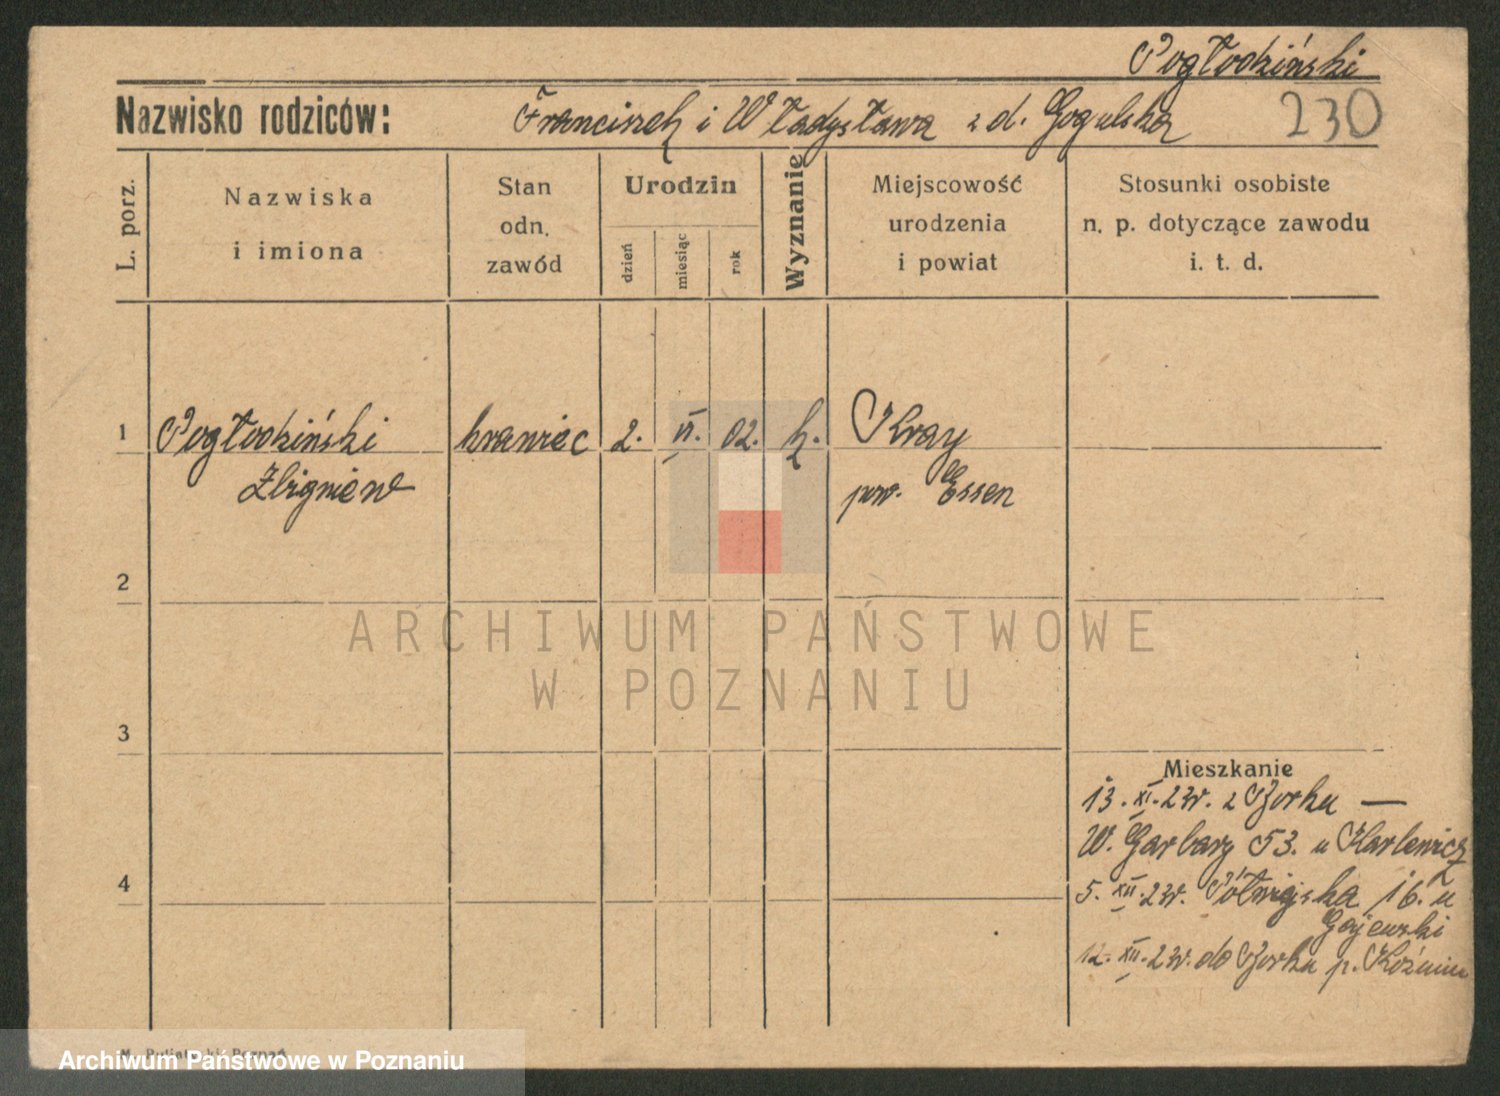 Pogłodziński
Nazwisko rodziców: Franciszek i Władysława z d. Gogulska 230
L. porz.
Nazwiska
i imiona
Stan
odn.
zawód
Urodzin
dzień
miesiąc
rok
Wyznanie
Miejscowość
urodzenia
i powiat
Stosunki osobiste
n. p. dotyczące zawodu
i. t. d.
1 Pogłodziński krawiec 2. VI. 02. k. Kray
Zbigniew pow. Essen
2
ARCHIWUM PAŃSTWOWE
W POZNANIU
3
Mieszkanie
13. XI. 23r. z Borku —
W. Garbary 53. u Karlewicz
4
5. XII. 23r. Półwiejska 16. u
Gajewski
12. XII. 23r. do Borku p. Koźmin
Poznań
Archiwum Państwowe w Poznaniu